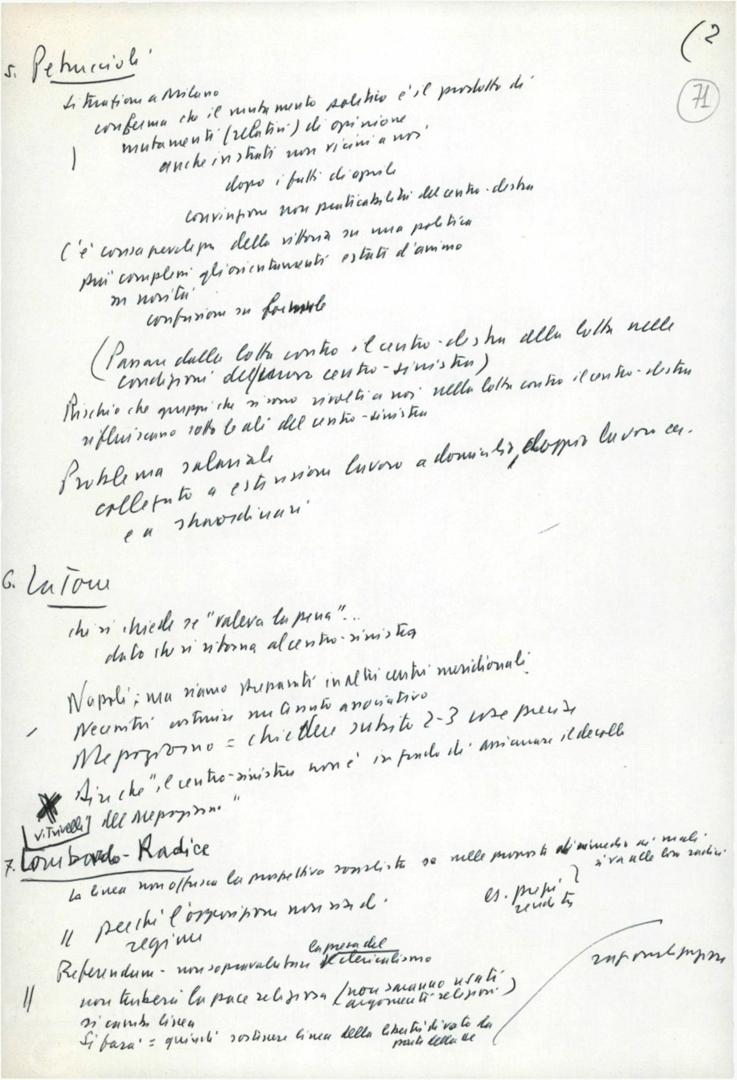 (2
71
5. Petruccioli
Situazione a Milano
conferma che il mutamento politico è il prodotto di
mutamenti (relativi) di opinione
anche in strati non vicini a noi
dopo i fatti di aprile
convinzione non praticabilità del centro-destra
C'è consapevolezza della vittoria su una politica
più complessi gli orientamenti e stati d'animo
su novità
confusione su formule
(Passare dalla lotta contro il centro-destra della lotta nelle
condizioni del nuovo centro-sinistra)
Rischio che gruppi che si sono rivolti a noi nella lotta contro il centro-destra
rifluiscano sotto le ali del centro-sinistra
Problema salariale
collegato a estensione lavoro a domicilio, doppio lavoro ecc.
e a straordinari
6. La Torre
chi si chiede se "valeva la pena"...
dato che si ritorna al centro-sinistra
Napoli; ma siamo preparati in altri centri meridionali
Necessità costruire un tessuto associativo
Mezzogiorno = chiedere subito 2-3 cose precise
Dire che "il centro-sinistra non è in grado di assicurare il decollo
del Mezzogiorno"
V. Trivelli
7. Lombardo-Radice
La linea non offusca la prospettiva socialista se nelle proposte di rimedio ai mali
si va alle loro radici
es. prezzi
rendita
perché l'opposizione non sia di
regime
Referendum - non sopravvalutare
la presa del clericalismo
non turberà la pace religiosa (non saranno usati
argomenti religiosi)
si cambi linea
Si farà = quindi sostenere linea della libertà di voto da
parte della DC